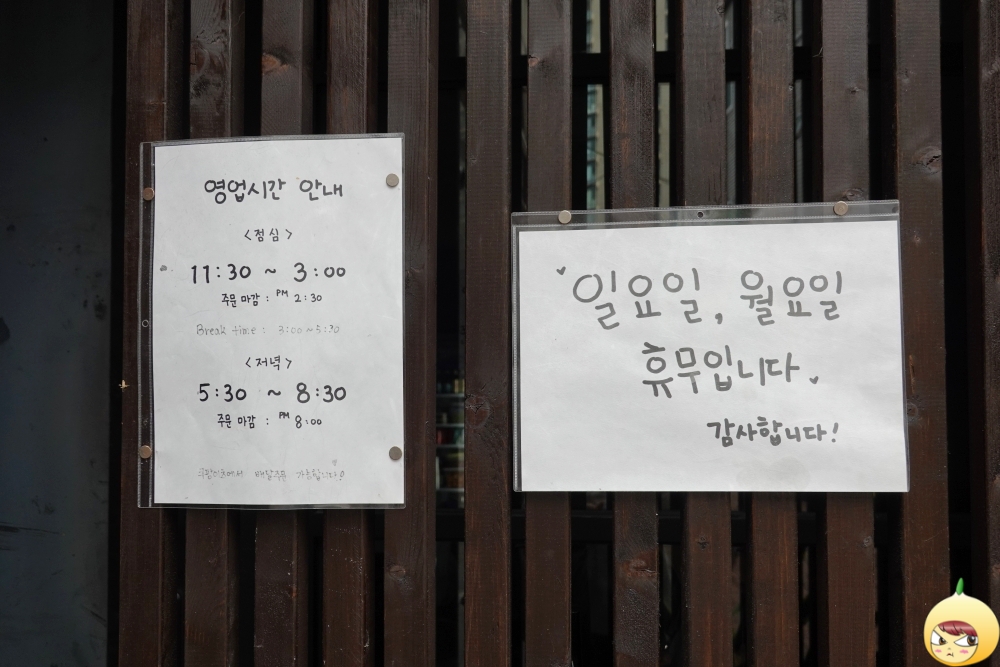 영업시간 안내
<점심>
11:30 ~ 3:00
주문 마감 : PM 2:30
Break time : 3:00 ~ 5:30
<저녁>
5:30 ~ 8:30
주문 마감 : PM 8:00
쿠팡이츠에서 배달주문 가능합니다!
일요일, 월요일
휴무입니다.
감사합니다!